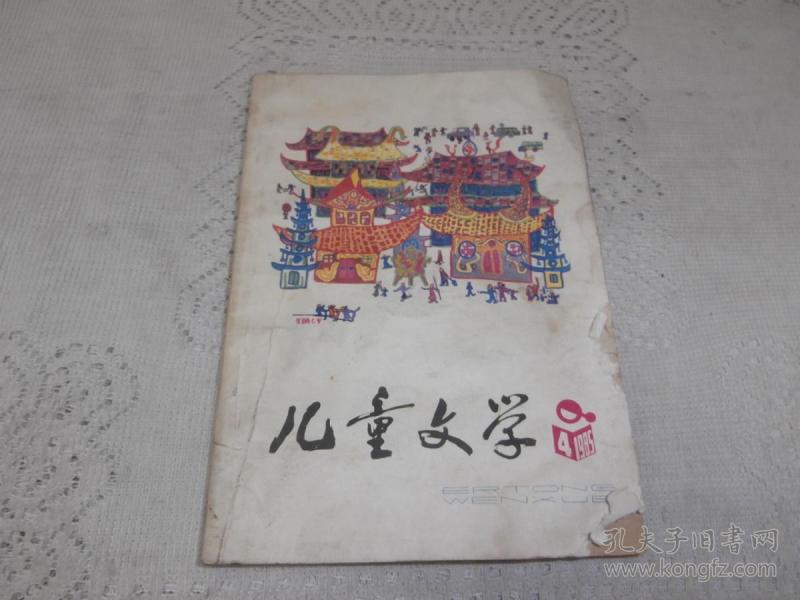 儿童文学
4
1985
ERTONG
WENXUE
孔夫子旧书网
www.kongfz.com